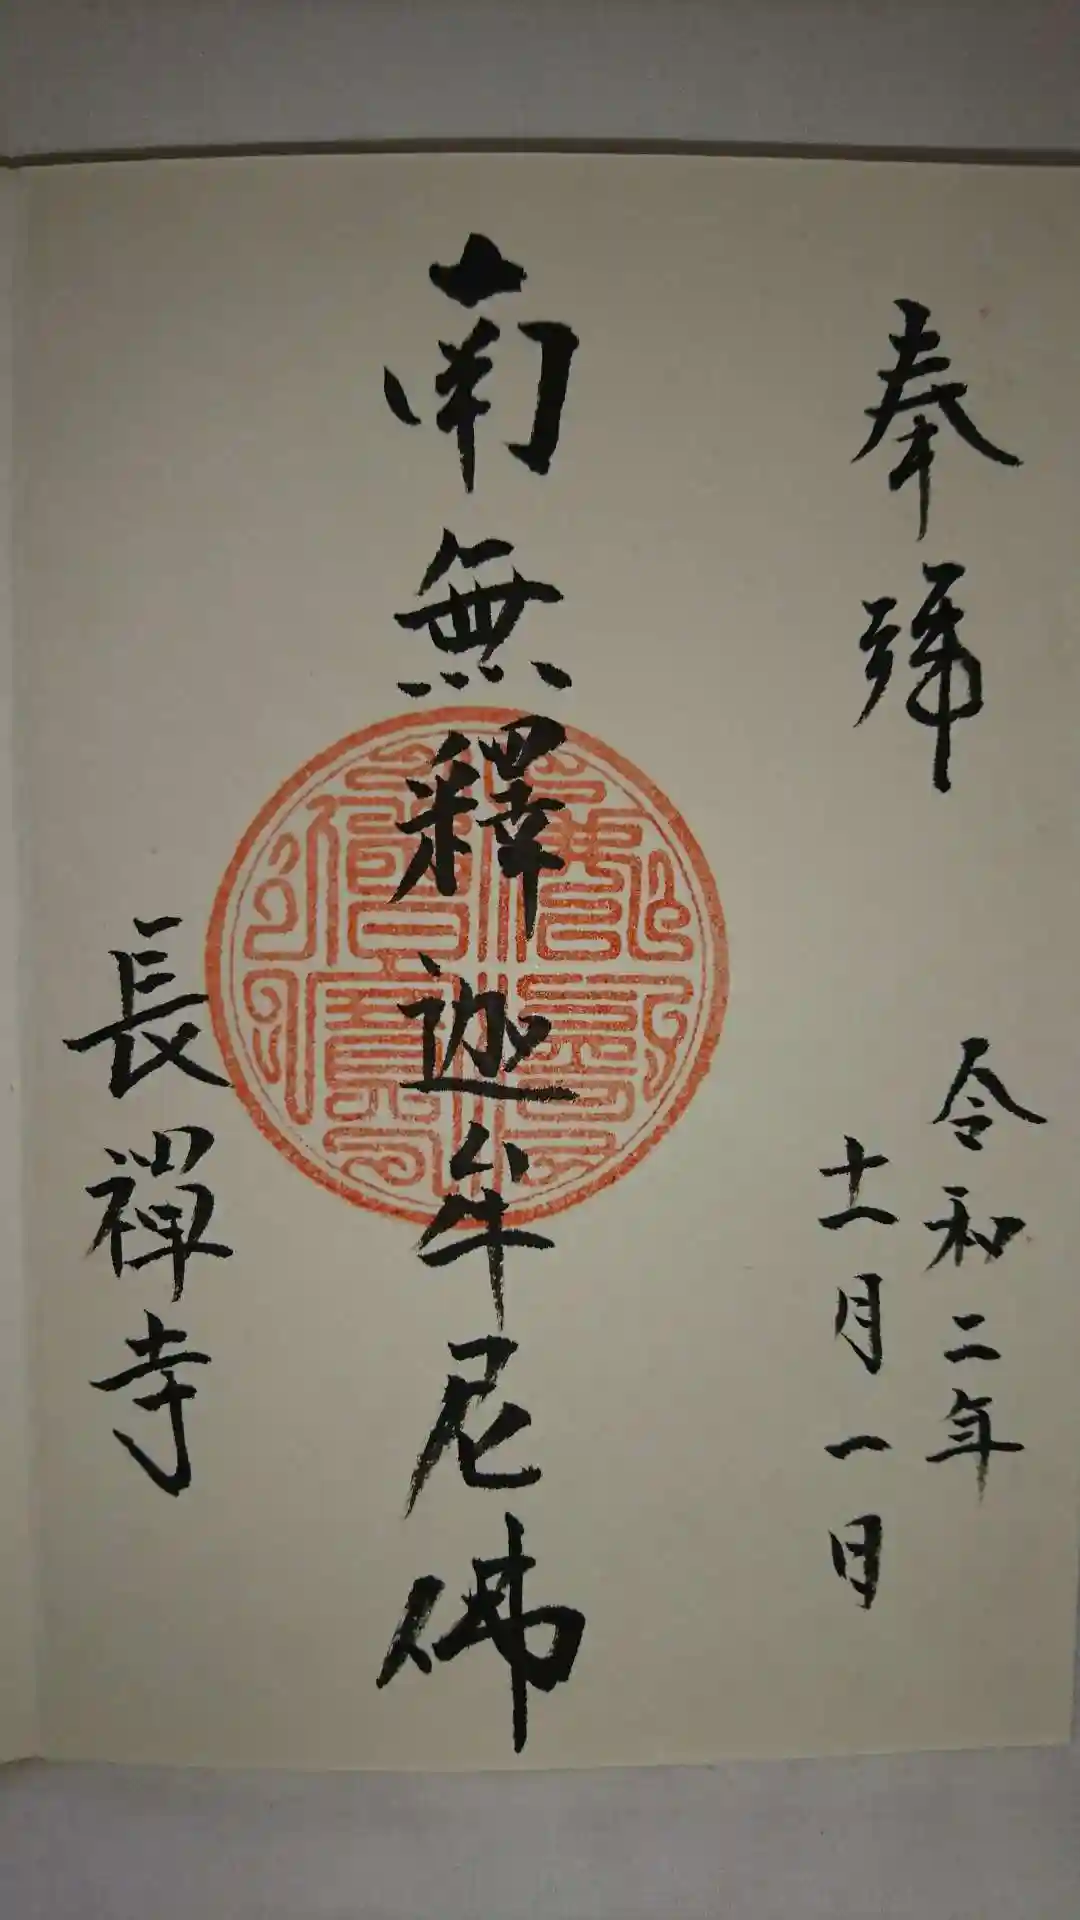 奉拝
令和二年
十一月一日
南無釋迦牟尼佛
長禪寺